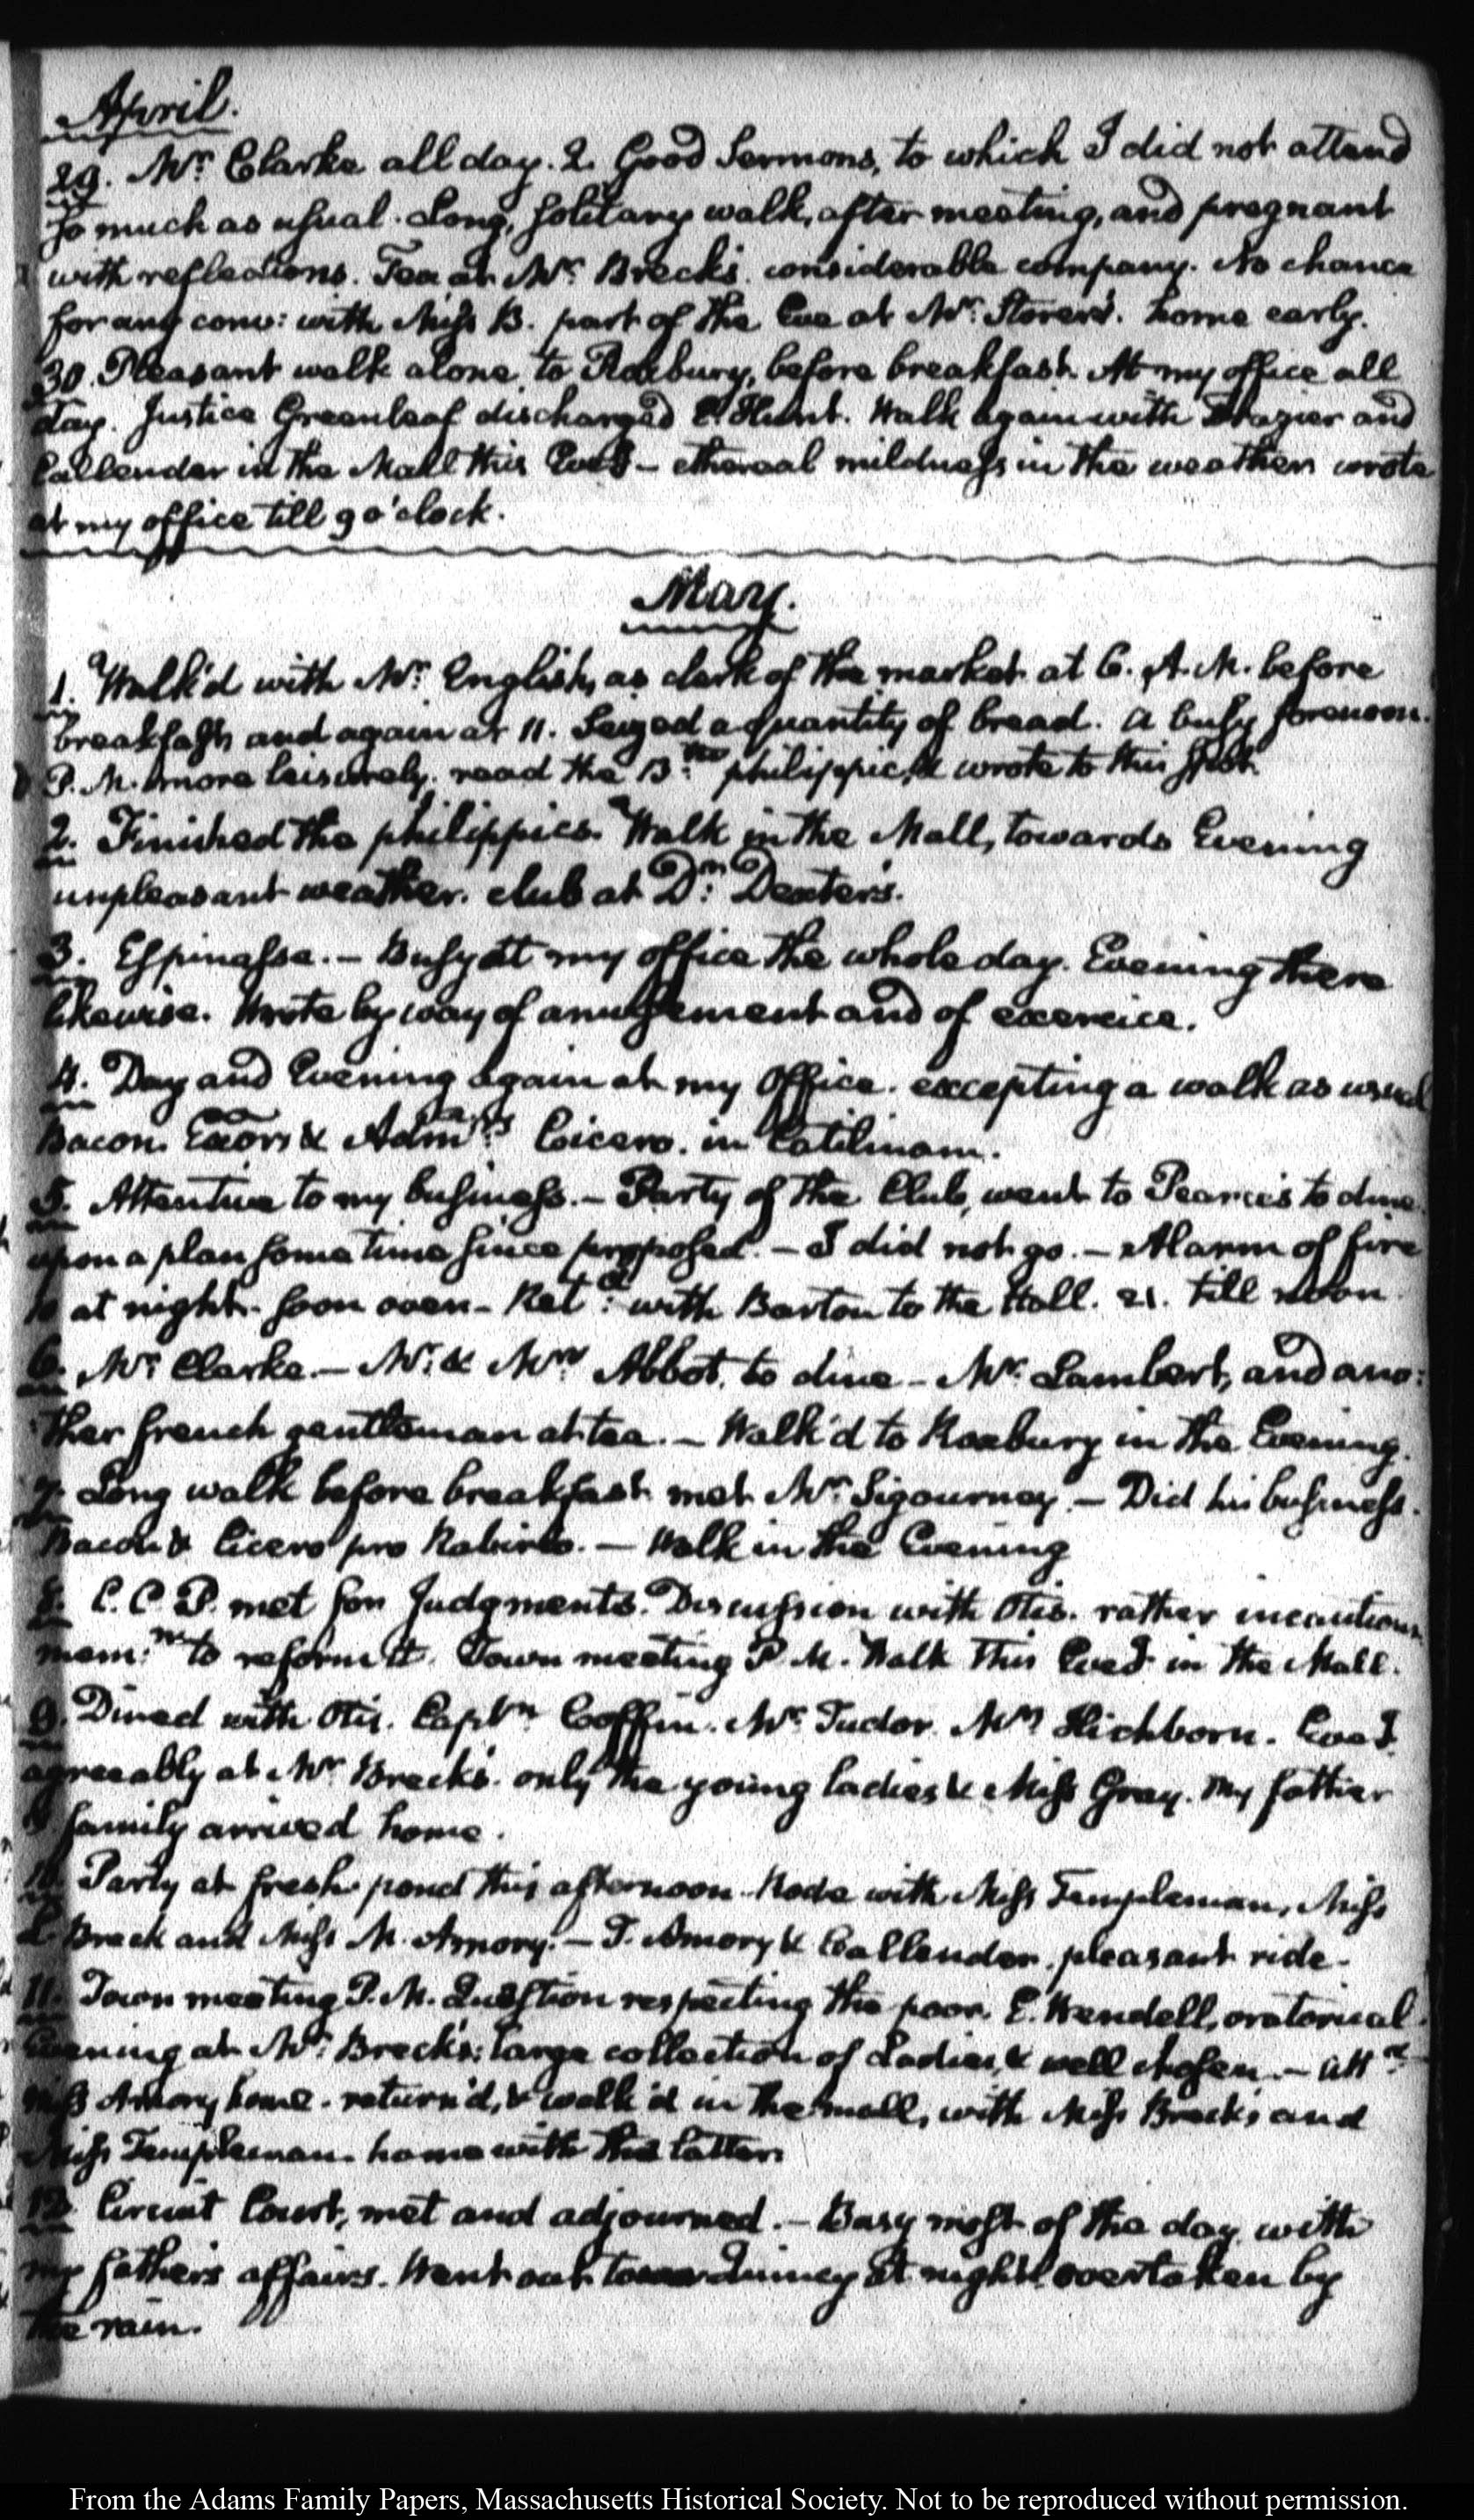 April.
29. Mr. Clarke all day. 2. Good Sermons, to which I did not attend
so much as usual. Long, solitary walk, after meeting, and pregnant
with reflections. Tea at Mr. Breck's. considerable company. No chance
for any conv: with Miss B. part of the Eve at Mr. Storer's. home early.
30. Pleasant walk alone, to Roxbury, before breakfast. At my office all
day. Justice Greenleaf discharged E. Hunt. Walk again with Frazier and
Callender in the Mall this Eveg — ethereal mildness in the weather. wrote
at my office till 9 o'clock.
May.
1. Walk'd with Mr. English, as clerk of the market at 6. A.M. before
breakfast, and again at 11. Seized a quantity of bread. a busy forenoon.
P.M. more leisurely. read the 13.th philippic, & wrote to this spot.
2. Finished the philippics. Walk in the Mall, towards Evening
unpleasant weather. club at Dr. Dexter's.
3. Espinasse. — Busy at my office the whole day. Evening there
likewise. Wrote by way of amusement and of exercice.
4. Day and Evening again at my Office. excepting a walk as usual
Bacon. Exors & Admrs Cicero. in Catilinam.
5. Attentive to my business. — Party of the Club, went to Pearce's to dine.
upon a plan some time since proposed. — I did not go. — Alarm of fire
10 at night. soon over — Ret:d with Barton to the Hall. 21. till noon.
6. Mr. Clarke. — Mr. & Mrs. Abbot, to dine — Mr. Lambert, and ano:
ther french gentleman at tea. — Walk'd to Roxbury in the Evening.
7. Long walk before breakfast met Mr. Sigourney — Did his business.
Bacon & Cicero pro Rabirio. — Walk in the Evening
8. C.C.P. met for Judgments. Discussion with Otis. rather incautious
mem:m to reform it. Town meeting P.M. Walk this Eveg in the Mall.
9. Dined with Otis. Captn Coffin. Mr. Tudor. Mrs. Hichborn. Eveg
agreeably at Mr. Breck's. only the young ladies & Miss Gray. My father
& family arrived home.
10. Party at fresh pond this afternoon. Rode with Miss Templeman, Miss
L. Breck and Miss M. Amory. — T. Amory & Callender. pleasant ride —
11. Town meeting P.M. Question respecting the poor. E. Wendell, oratorical.
Evening at Mr. Breck's: large collection of Ladies, & well chosen — att:d
Miss Amory home. return'd, & walk'd in the mall, with Miss Breck's and
Miss Templeman. home with the latter.
12. Circuit Court, met and adjourned. — Busy most of the day with
my father's affairs. Went out to Quincy at night. overtaken by
the rain.
From the Adams Family Papers, Massachusetts Historical Society. Not to be reproduced without permission.